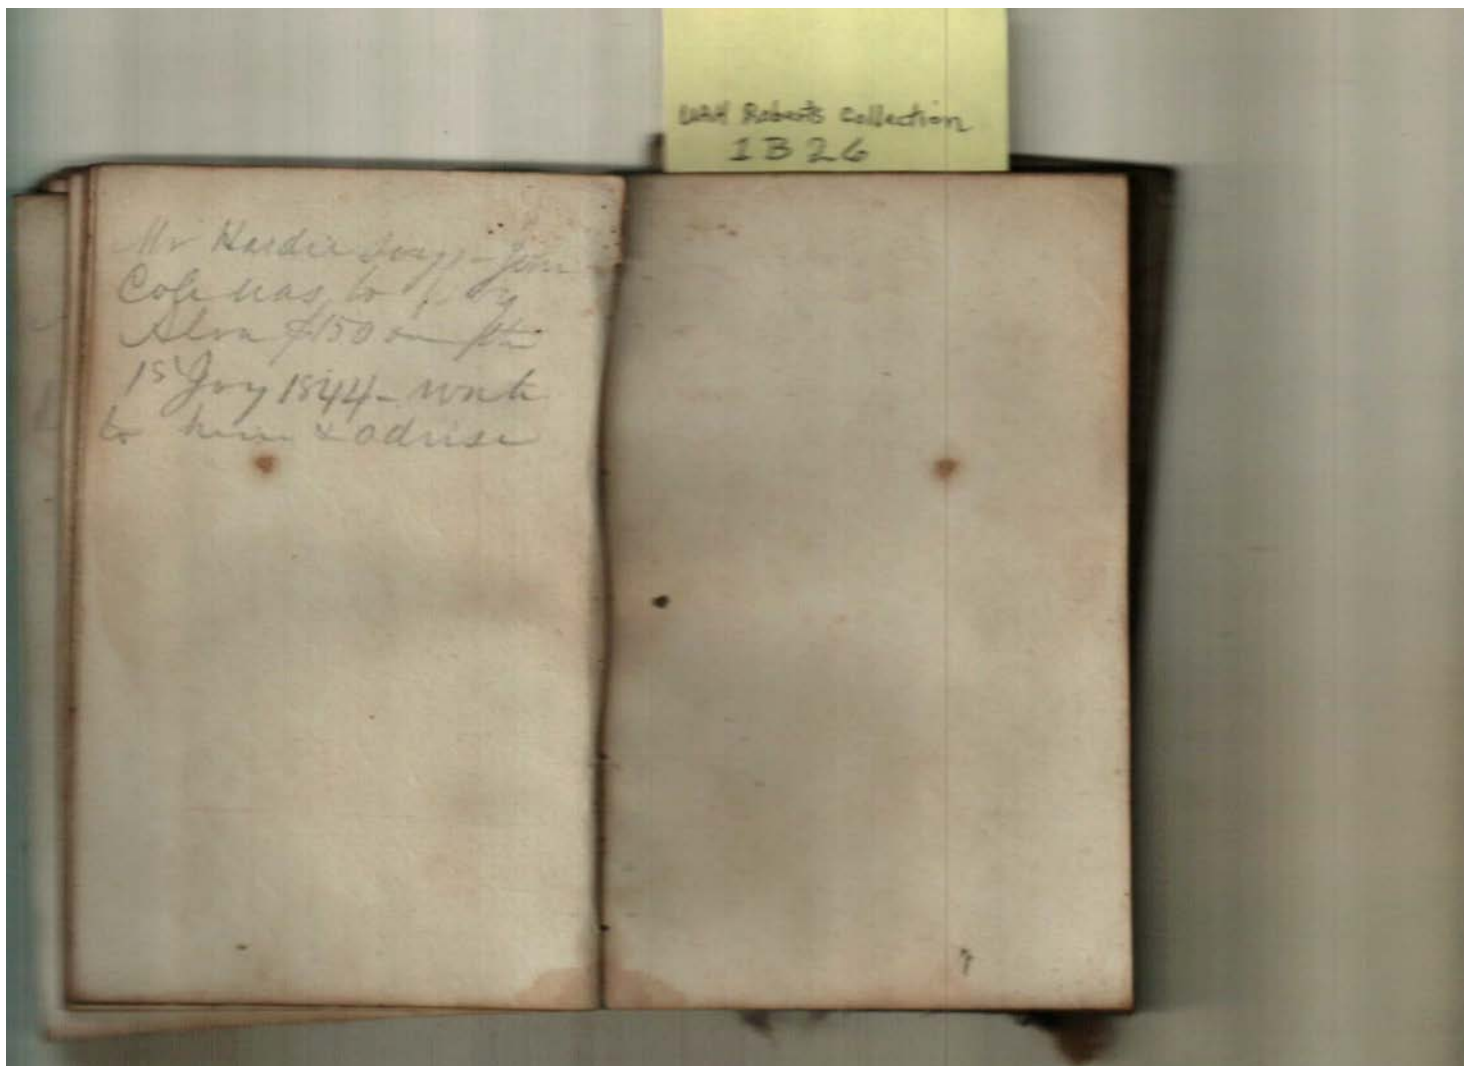 UAH Roberts Collection
1B26
Mr Hardie says - John
was to pay
Alva $150 on the
15 Jny 1844 - write
to him & advise